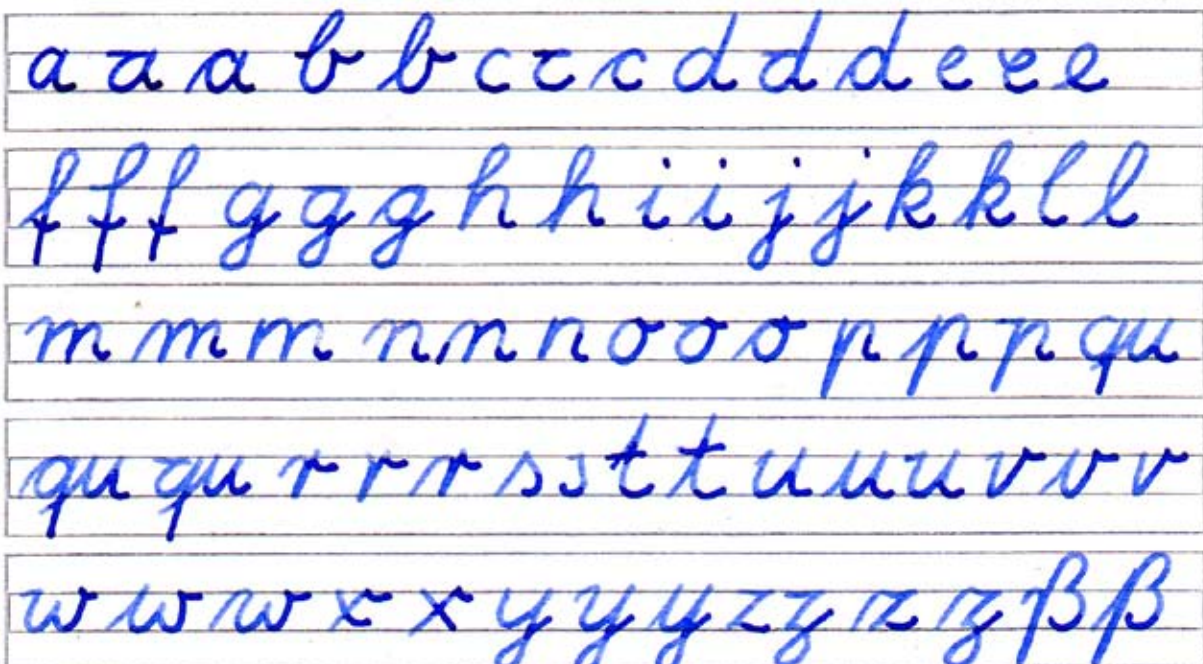 a a a b b c c c d d d e e e
f f f g g g h h i i j j k k l l
m m m n n n o o o p p p qu
qu qu r r r s s t t u u u v v v
w w w x x y y y z z z z ß ß